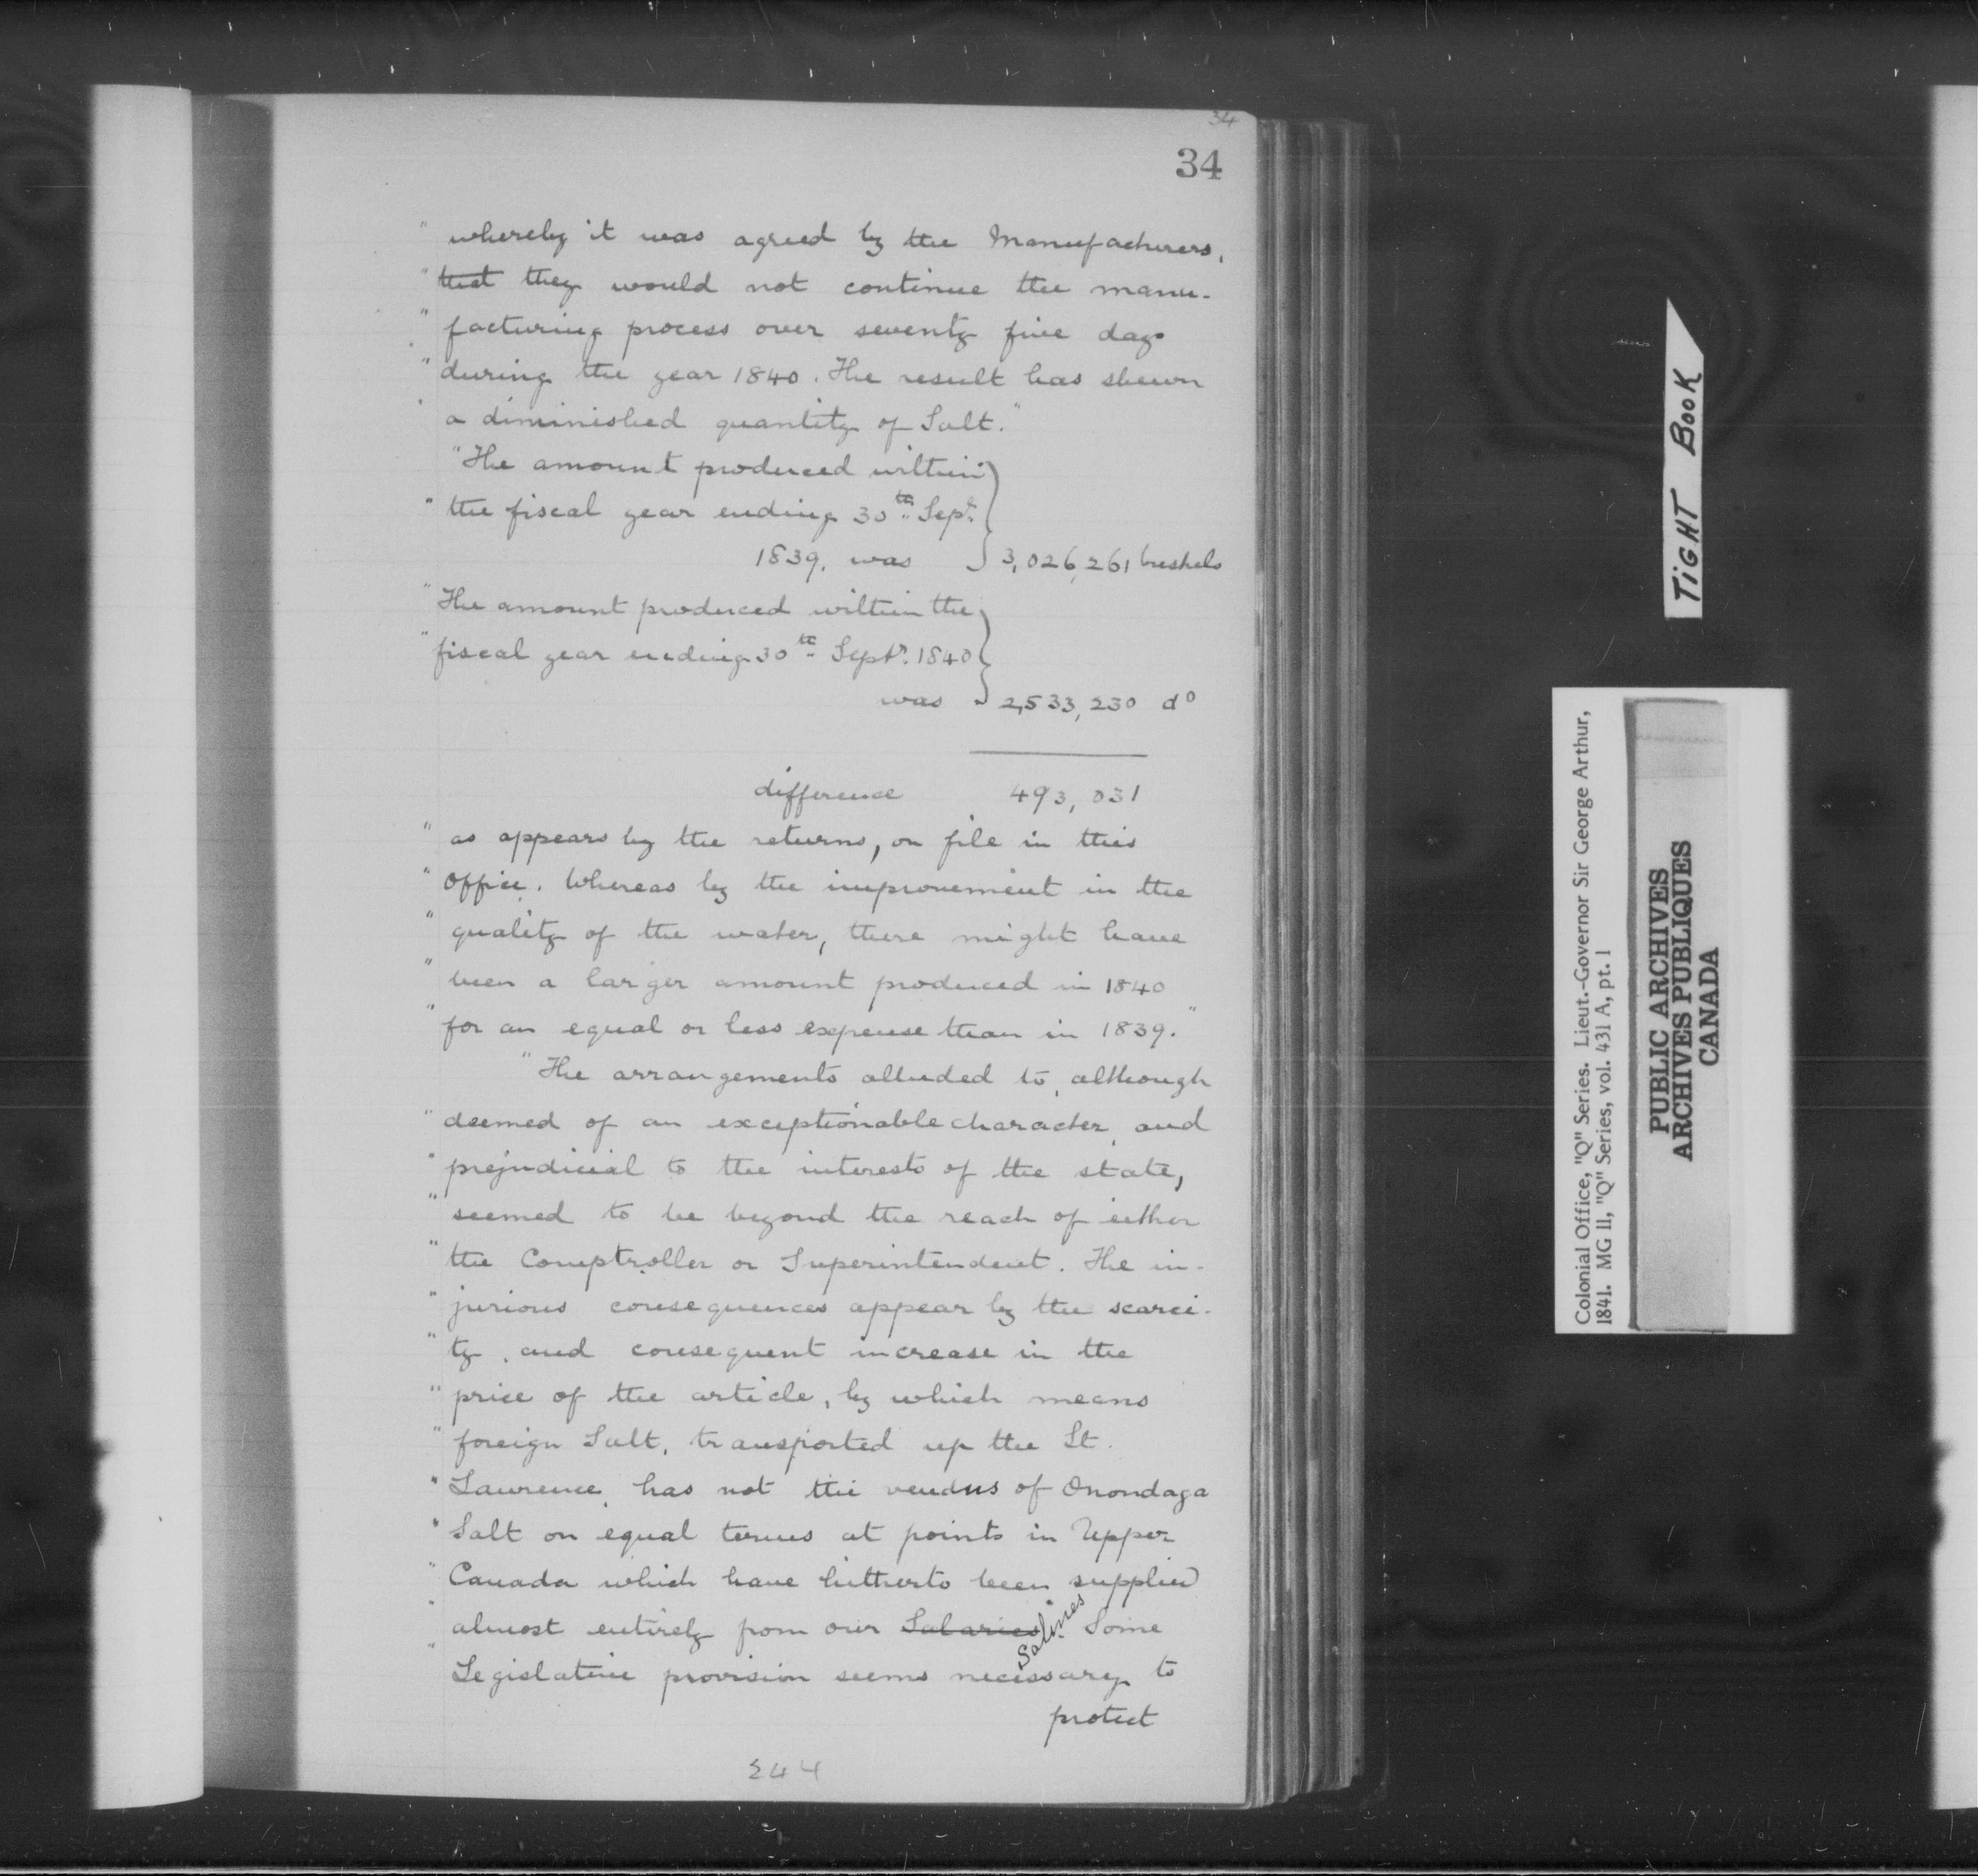 34
34
" whereby it was agreed by the Manufacturers,
" that they would not continue the manu-
" facturing process over seventy five days
" during the year 1840. The result has shewn
" a diminished quantity of Salt."
"The amount produced within
" the fiscal year ending 30th Sept.
1839, was 3,026,261 bushels
" The amount produced within the
" fiscal year ending 30th Septr. 1840
was 2,533,230 do
difference 493,031
" as appears by the returns, on file in this
" office. Whereas by the improvement in the
" quality of the water, there might have
" been a larger amount produced in 1840
" for an equal or less expense than in 1839."
" The arrangements alluded to, although
" deemed of an exceptionable character, and
" prejudicial to the interests of the state,
" seemed to be beyond the reach of either
" the Comptroller or Superintendent. The in-
" jurious consequences appear by the scarci-
" ty, and consequent increase in the
" price of the article, by which means
" foreign Salt, transported up the St.
" Lawrence, has not the vendus of Onondaga
" Salt on equal terms at points in Upper
" Canada which have hitherto been supplied
" almost entirely from our Salaries Salines. Some
" Legislative provision seems necessary to
protect
244
TIGHT BOOK
Colonial Office, "Q" Series. Lieut.-Governor Sir George Arthur,
1841. MG 11, "Q" Series, vol. 431 A, pt. 1
PUBLIC ARCHIVES
ARCHIVES PUBLIQUES
CANADA